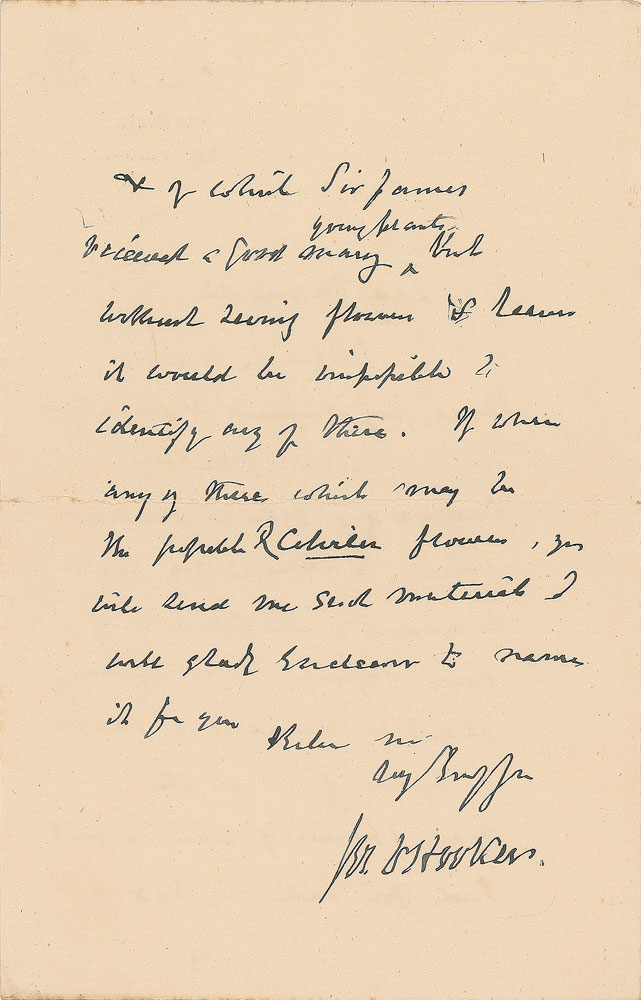 & of which Sir James
young plants
received a good many ^ but
without seeing flowers & leaves
it would be impossible to
identify any of these. If when
any of these which may be
the possible R flowers, you
will send me such material I
will gladly endeavour to name
it for you
Believe me
Very
Jos. D Hooker.